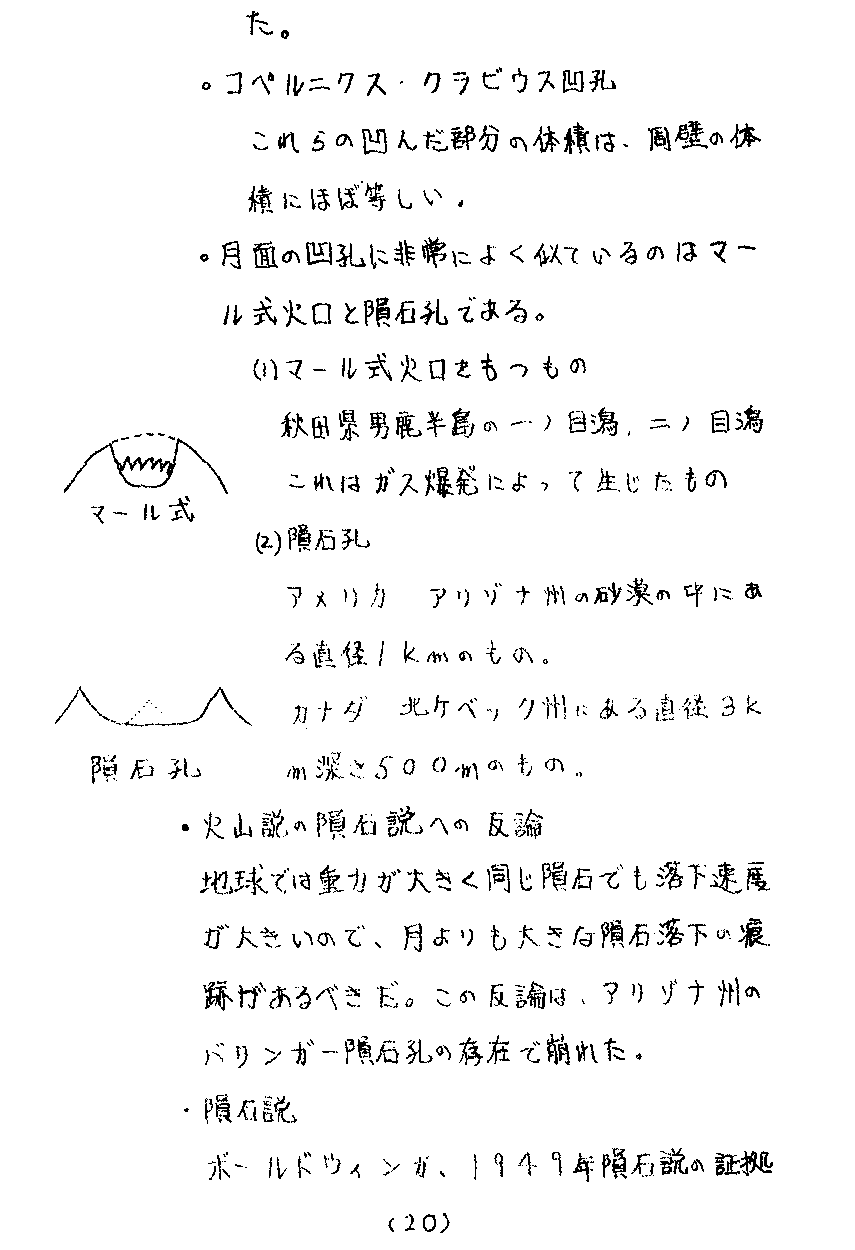 た。
。コペルニクス・クラビウス凹孔
これらの凹んだ部分の体積は、周壁の体
積にほぼ等しい。
。月面の凹孔に非常によく似ているのはマー
ル式火口と隕石孔である。
(1)マール式火口をもつもの
秋田県男鹿半島の一ノ目潟、二ノ目潟
これはガス爆発によって生じたもの
マール式
(2)隕石孔
アメリカ アリゾナ州の砂漠の中にあ
る直径1kmのもの。
カナダ 北ケベック州にある直径3k
m深さ500mのもの。
隕石孔
・火山説の隕石説への反論
地球では重力が大きく同じ隕石でも落下速度
が大きいので、月よりも大きな隕石落下の痕
跡があるべきだ。この反論は、アリゾナ州の
バリンガー隕石孔の存在で崩れた。
・隕石説
ボールドウィンが、1949年隕石説の証拠
(20)